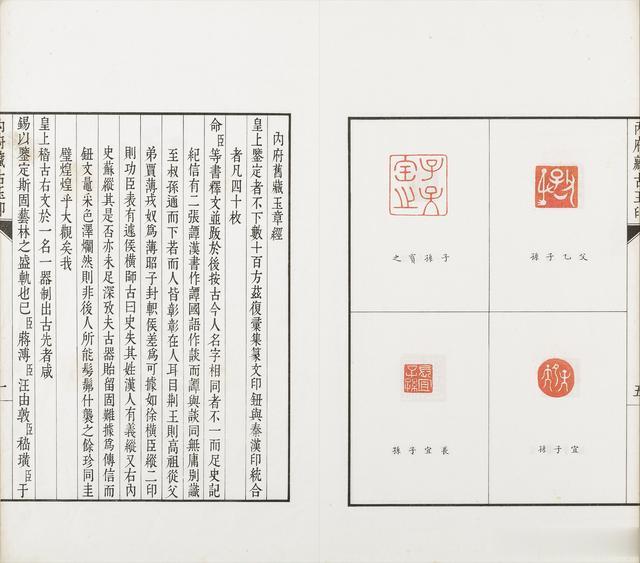 內府藏古玉印
五
父乙子孫
父乙子孫
子孫寳之
子孫寳之
宜子孫
宜子孫
長宜子孫
長宜子孫
內府舊藏玉章經
皇上鑒定者不下數十百方茲復彙集篆文印鈕與秦漢印統合
者凡四十枚
命臣等書釋文並跋於後按古今人名字相同者不一而足史記
紀信有二張譚漢書作譚國語作談而譚與談同無庸別識
至叔孫通而下若而人皆彰彰在人耳目荆王則高祖從父
弟賈薄戎奴為薄昭子封軹侯差為可據如徐橫臣縱二印
則功臣表有遽侯橫師古曰史失其姓漢人有義縱又右內
史蘇縱其是否亦未足深攷夫古器貽留固難據為傳信而
鈕文采色澤爛然則非後人所能髣髴什襲之餘珍同圭
璧煌煌乎大觀矣哉
皇上稽古右文於一名一器制出古先者咸
錫以鑒定斯固藝林之盛軌也已臣蔣溥臣汪由敦臣嵇璜臣于
內府藏古玉印
一